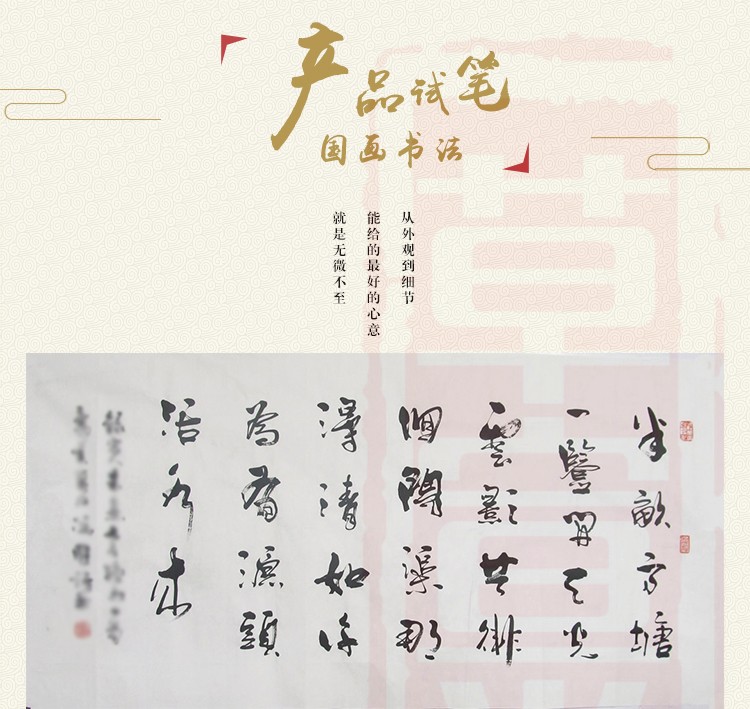 产品试笔
国画书法
从外观到细节
能给的最好的心意
就是无微不至
半畝方塘
一鑒開天光
雲影共徘
徊問渠那
得清如許
為有源頭
活水来